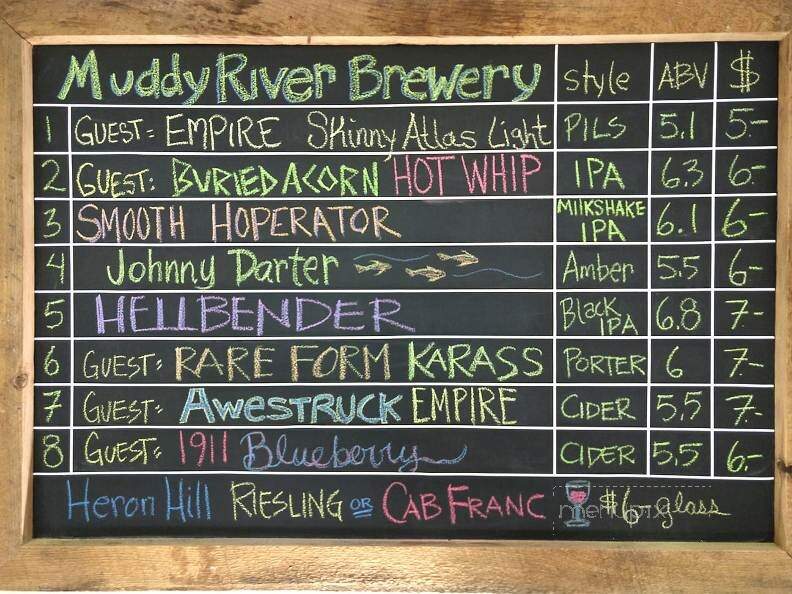 Muddy River Brewery style ABV $
1 GUEST: EMPIRE Skinny Atlas Light PILS 5.1 5-
2 GUEST: BURIED ACORN HOT WHIP IPA 6.3 6-
3 SMOOTH HOPERATOR MILKSHAKE IPA 6.1 6-
4 Johnny Darter Amber 5.5 6-
5 HELLBENDER Black IPA 6.8 7-
6 GUEST: RARE FORM KARASS PORTER 6 7-
7 GUEST: AWESTRUCK EMPIRE CIDER 5.5 7-
8 GUEST: 1911 Blueberry CIDER 5.5 6-
Heron Hill RIESLING OR CAB FRANC $6- glass
menupix